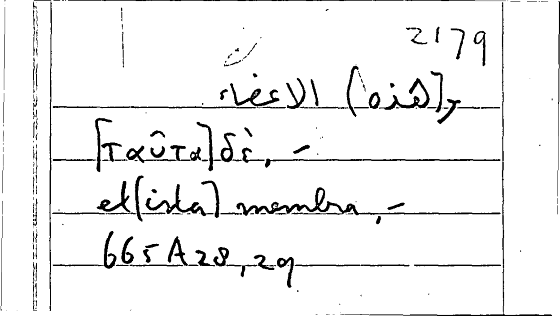 2179
و[هذه] الاعضاء
[ταῦτα] δὲ, –
et [ista] membra, –
665 A 28, 29